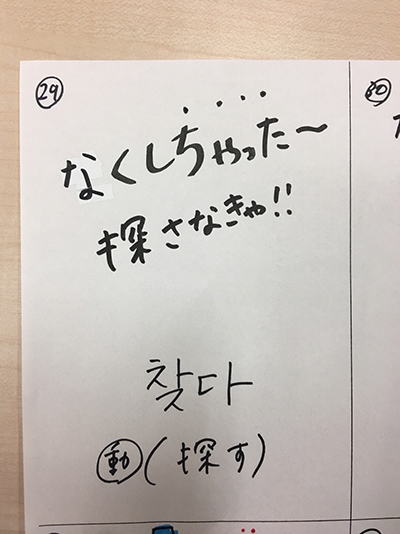 ㉙
なくしちゃった〜
探さなきゃ!!
찾다
動(探す)
㉚